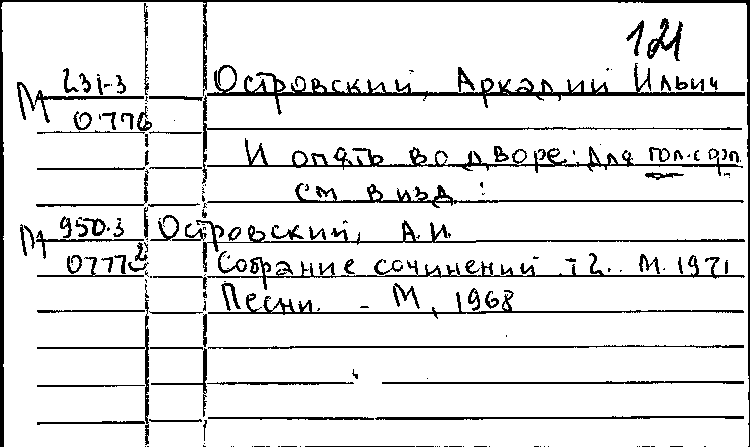 121
М 231-3 Островский, Аркадий Ильич
0776
И опять во дворе: для гол. с фп.
см в изд:
М 950.3 Островский, А.И.
0777 2 Собрание сочинений т 2. М. 1971
Песни. - М, 1968